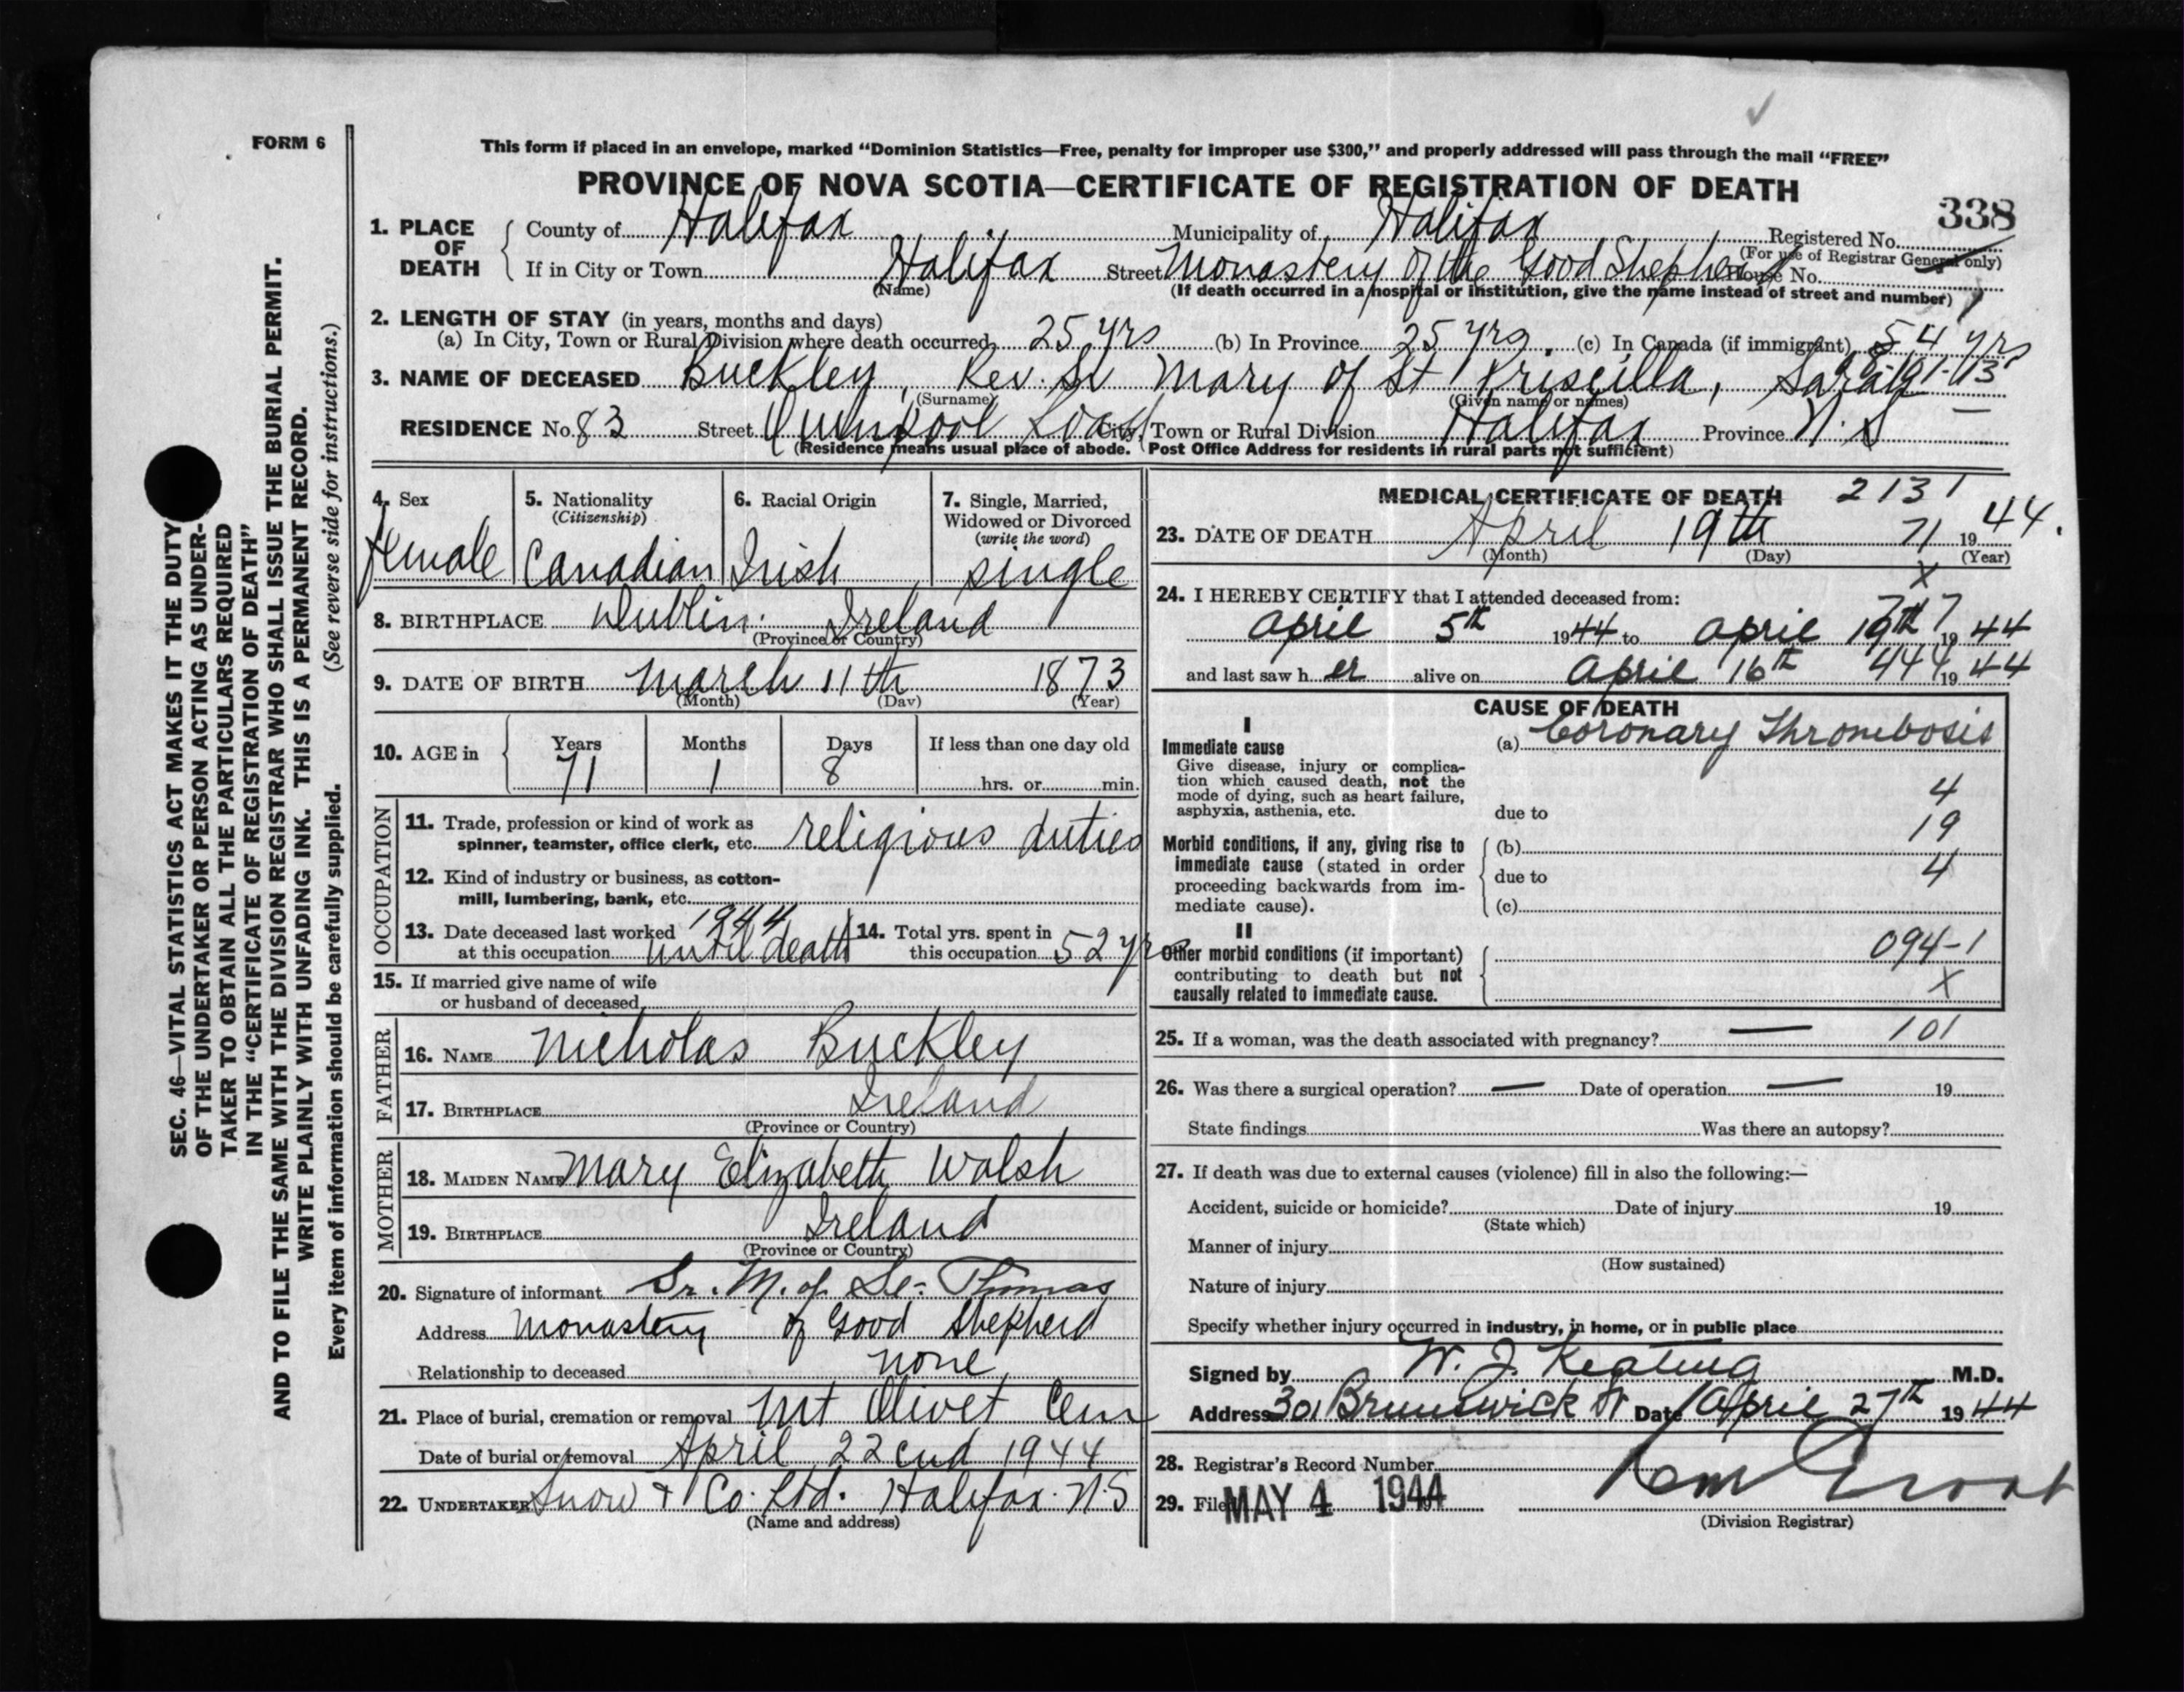 FORM 6
This form if placed in an envelope, marked “Dominion Statistics—Free, penalty for improper use $300,” and properly addressed will pass through the mail “FREE”
PROVINCE OF NOVA SCOTIA—CERTIFICATE OF REGISTRATION OF DEATH
338
1. PLACE OF DEATH County of Halifax Municipality of Halifax Registered No.
(For use of Registrar General only)
If in City or Town Halifax Street Monastery of the Good Shepherd House No.
(Name) (If death occurred in a hospital or institution, give the name instead of street and number)
2. LENGTH OF STAY (in years, months and days)
(a) In City, Town or Rural Division where death occurred 25 yrs (b) In Province 25 yrs. (c) In Canada (if immigrant) 54 yrs
3. NAME OF DECEASED Buckley, Rev. Sr Mary of St Priscilla, Sarah
(Surname) (Given name or names)
RESIDENCE No. 83 Street Quinpool Road City, Town or Rural Division Halifax Province N.S
(Residence means usual place of abode. Post Office Address for residents in rural parts not sufficient)
4. Sex
female
5. Nationality
(Citizenship)
Canadian
6. Racial Origin
Irish
7. Single, Married,
Widowed or Divorced
(write the word)
single
8. BIRTHPLACE Dublin. Ireland
(Province or Country)
9. DATE OF BIRTH March 11th 1873
(Month) (Day) (Year)
10. AGE in Years Months Days If less than one day old
71 1 8 hrs. or min.
OCCUPATION
11. Trade, profession or kind of work as
spinner, teamster, office clerk, etc. religious duties
12. Kind of industry or business, as cotton-
mill, lumbering, bank, etc.
13. Date deceased last worked 1944
at this occupation until death
14. Total yrs. spent in
this occupation 52 yrs
15. If married give name of wife
or husband of deceased
FATHER
16. NAME Nicholas Buckley
17. BIRTHPLACE Ireland
(Province or Country)
MOTHER
18. MAIDEN NAME Mary Elizabeth Walsh
19. BIRTHPLACE Ireland
(Province or Country)
20. Signature of informant Sr. M. of St. Thomas
Address Monastery of Good Shepherd
Relationship to deceased none
21. Place of burial, cremation or removal Mt Olivet Cem
Date of burial or removal April 22cnd 1944
22. UNDERTAKER Snow & Co. Ltd. Halifax. N.S
(Name and address)
MEDICAL CERTIFICATE OF DEATH 2131
23. DATE OF DEATH April 19th 71 1944.
(Month) (Day) (Year)
X
24. I HEREBY CERTIFY that I attended deceased from:
717
April 5th 1944 to April 19th 1944
and last saw her alive on April 16th 444 1944
CAUSE OF DEATH
I
Immediate cause
Give disease, injury or complica-
tion which caused death, not the
mode of dying, such as heart failure,
asphyxia, asthenia, etc.
(a) Coronary Thrombosis
4
due to
19
Morbid conditions, if any, giving rise to
immediate cause (stated in order
proceeding backwards from im-
mediate cause).
(b)
due to 4
(c)
II
Other morbid conditions (if important)
contributing to death but not
causally related to immediate cause.
094-1
X
25. If a woman, was the death associated with pregnancy? — 101
26. Was there a surgical operation? — Date of operation — 19
State findings Was there an autopsy?
27. If death was due to external causes (violence) fill in also the following:—
Accident, suicide or homicide? Date of injury 19
(State which)
Manner of injury
(How sustained)
Nature of injury
Specify whether injury occurred in industry, in home, or in public place
Signed by W. J. Keating M.D.
Address 301 Brunswick St Date April 27th 1944
28. Registrar's Record Number
29. Filed MAY 4 1944
(Division Registrar)
SEC. 46—VITAL STATISTICS ACT MAKES IT THE DUTY
OF THE UNDERTAKER OR PERSON ACTING AS UNDER-
TAKER TO OBTAIN ALL THE PARTICULARS REQUIRED
IN THE “CERTIFICATE OF REGISTRATION OF DEATH”
AND TO FILE THE SAME WITH THE DIVISION REGISTRAR WHO SHALL ISSUE THE BURIAL PERMIT.
WRITE PLAINLY WITH UNFADING INK. THIS IS A PERMANENT RECORD.
Every item of information should be carefully supplied. (See reverse side for instructions.)